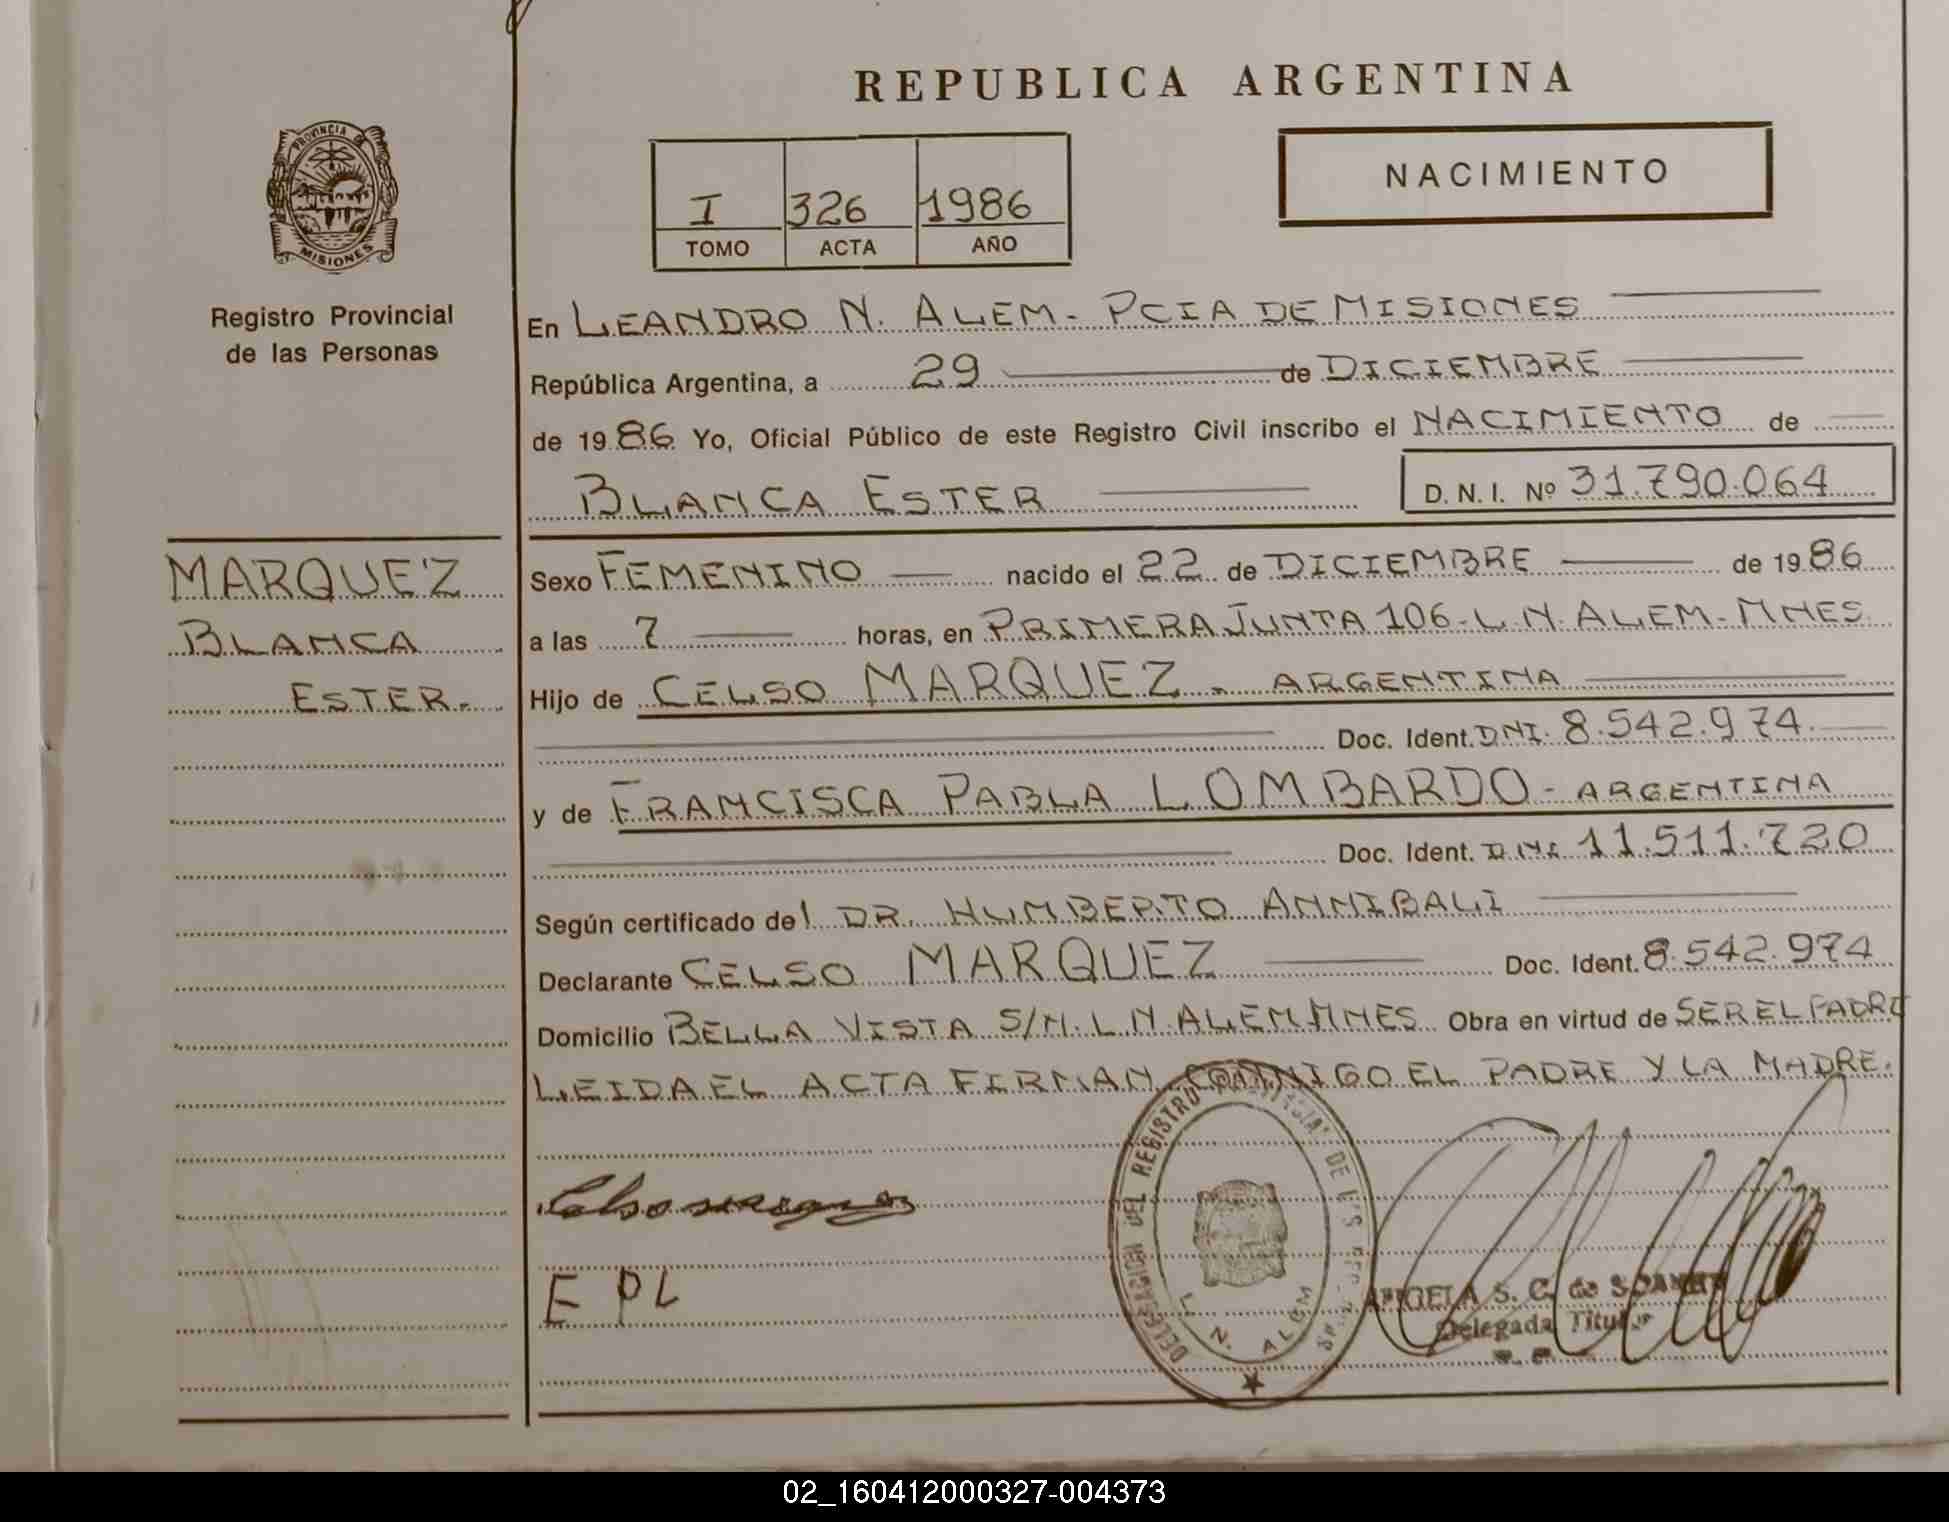 REPUBLICA ARGENTINA
PROVINCIA DE
MISIONES
Registro Provincial
de las Personas
NACIMIENTO
I 326 1986
TOMO ACTA AÑO
En LEANDRO N. ALEM - PCIA DE MISIONES
República Argentina, a 29 de DICIEMBRE
de 1986 Yo, Oficial Público de este Registro Civil inscribo el NACIMIENTO de
BLANCA ESTER D. N. I. Nº 31.790.064
MARQUEZ
BLANCA
ESTER.
Sexo FEMENINO nacido el 22 de DICIEMBRE de 1986
a las 7 horas, en PRIMERA JUNTA 106 - L.N. ALEM - MNES.
Hijo de CELSO MARQUEZ - ARGENTINA
Doc. Ident. DNI. 8.542.974.
y de FRANCISCA PABLA LOMBARDO - ARGENTINA
Doc. Ident. DNI 11.511.720
Según certificado del DR. HUMBERTO ANNIBALI
Declarante CELSO MARQUEZ Doc. Ident. 8.542.974
Domicilio BELLA VISTA S/N. L N ALEM MNES Obra en virtud de SER EL PADRE
LEIDA EL ACTA FIRMAN CONMIGO EL PADRE Y LA MADRE.
DELEGACION DEL REGISTRO PROVINCIAL DE LAS
L. N. ALEM
E PL
ANGELA S. C. de
Delegada Titular
02_160412000327-004373